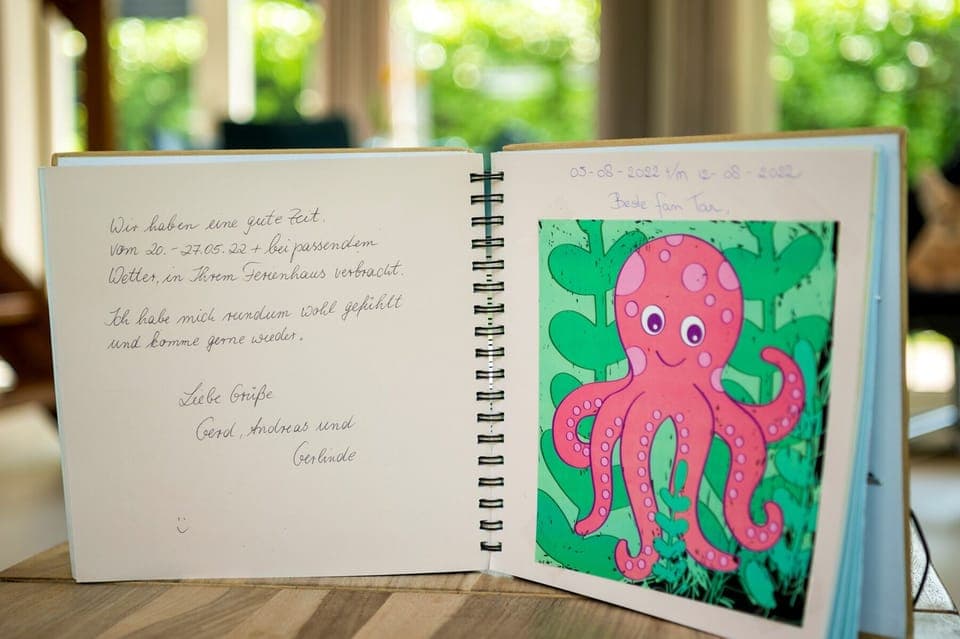 Wir haben eine gute Zeit.
vom 20. - 27.05.22 + bei passendem
Wetter, in Ihrem Ferienhaus verbracht.
Ich habe mich rundum wohl gefühlt
und komme gerne wieder.
Liebe Grüße
Gerd, Andreas und
Gerlinde
05-08-2022 t/m 12-08-2022
Beste fam Tar,